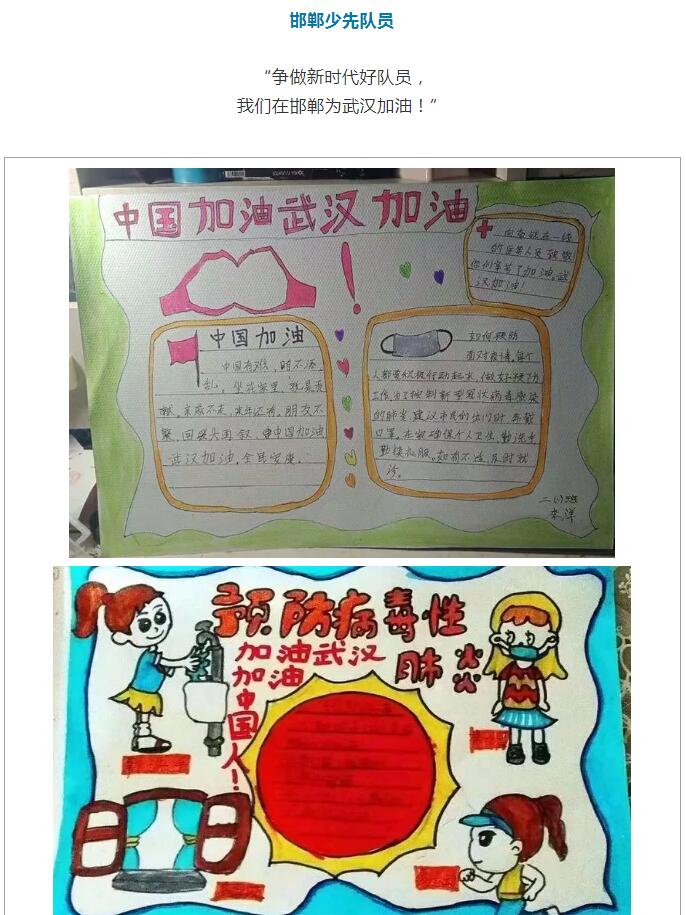 邯郸少先队员
“争做新时代好队员，
我们在邯郸为武汉加油！”
中国加油武汉加油
向奋战在一线
的医务人员致敬
你们辛苦了加油。武
汉加油！
中国加油
中国有难，
乱，坐在家里，就是贡
献，亲戚不走，来年还有。朋友不
聚，回头再叙，中国加油
武汉加油，全民安康。
如何预防
面对疫情，每个
人都要积极行动起来，做好预防
工作，为了控制新型冠状病毒感染
的肺炎，建议市民朋出门时，要戴
口罩，在家确保个人卫生，勤洗手
勤换衣服。如有不适，及时就
诊。
二(1)班
李洋
预防病毒性
肺炎
加油武汉
加油
中国人！